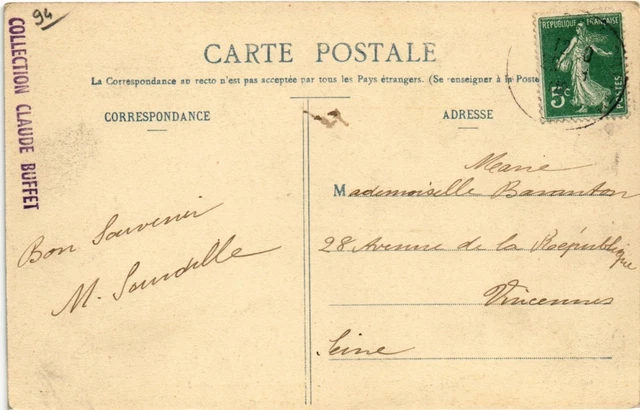 94
COLLECTION CLAUDE BUFFET
RÉPUBLIQUE FRANÇAISE
5c
POSTES
CARTE POSTALE
La Correspondance au recto n'est pas acceptée par tous les Pays étrangers. (Se renseigner à la Poste
CORRESPONDANCE
Bon Souvenir
M.
ADRESSE
Marie
Mademoiselle Baranton
28 Avenue de la République
Vincennes
Seine